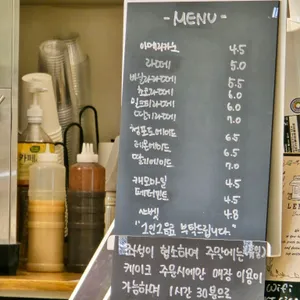 - MENU -
아메리카노 4.5
라떼 5.0
바닐라라떼 5.5
초코라떼 6.0
밀크티라떼 6.0
딸기라떼 7.0
자몽에이드 6.5
레몬에이드 6.5
딸기에이드 7.0
캐모마일 4.5
페퍼민트 4.5
샤벳 4.8
"1인 1음료 부탁드립니다."
좌석이 협소하여 주말에는
케이크 주문시에만 매장 이용이
가능하며 1시간 30분으로
Wifi